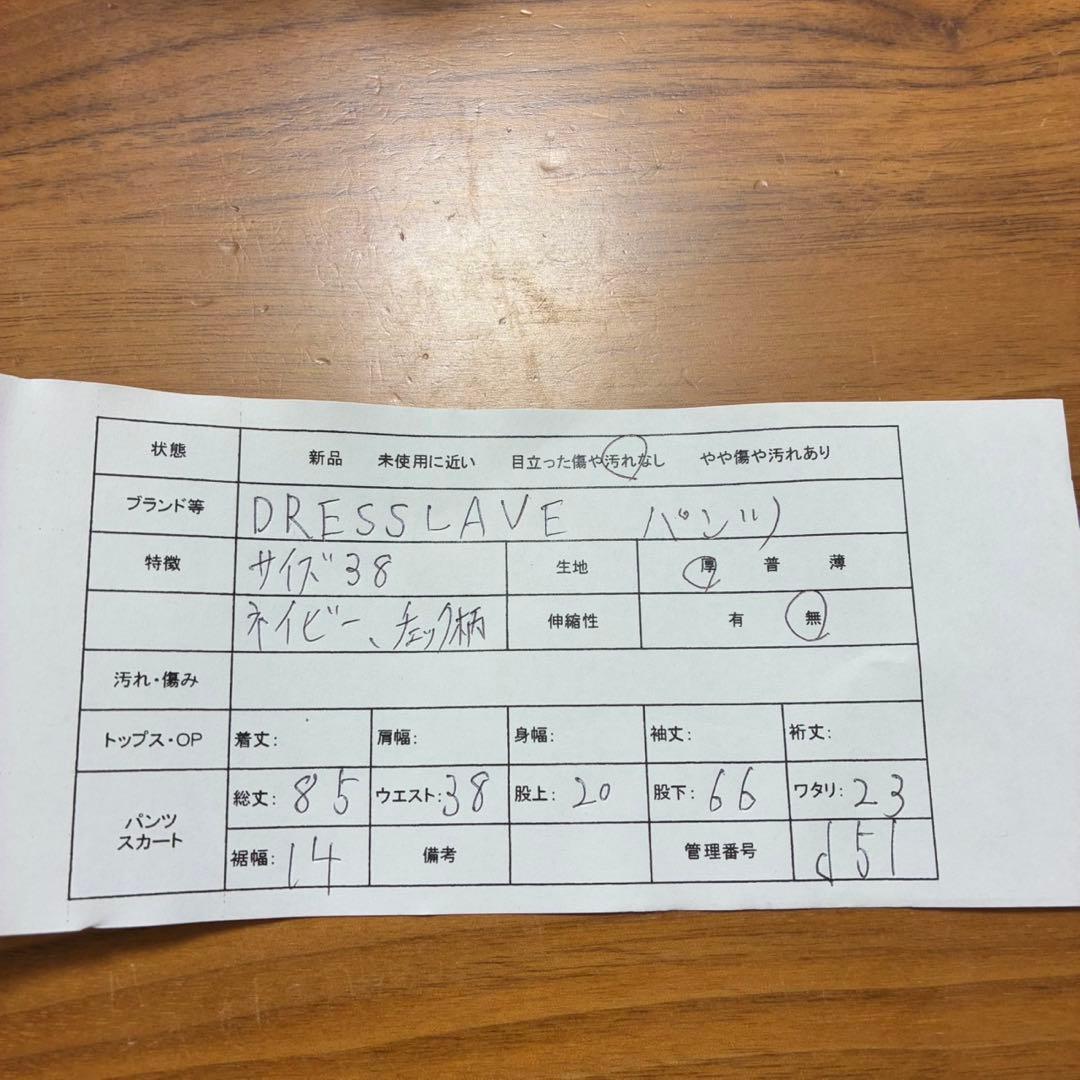 状態 新品 未使用に近い 目立った傷や汚れなし やや傷や汚れあり
ブランド等 DRESSLAVE パンツ
特徴 サイズ38 生地 厚 普 薄
ネイビー、チェック柄 伸縮性 有 無
汚れ・傷み
トップス・OP 着丈: 肩幅: 身幅: 袖丈: 裄丈:
パンツ スカート 総丈: 85 ウエスト: 38 股上: 20 股下: 66 ワタリ: 23
裾幅: 14 備考 管理番号 d51